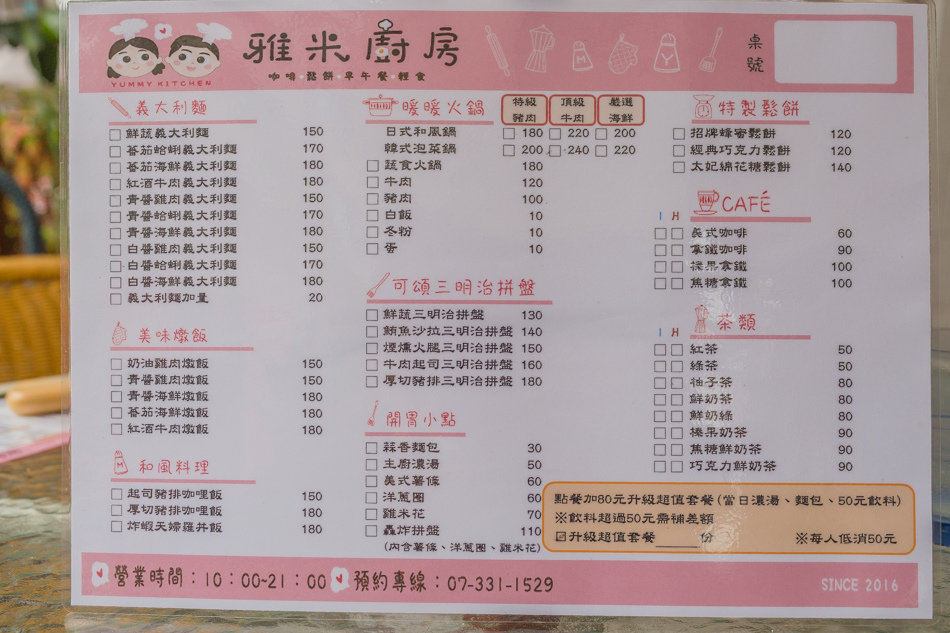 YUMMY KITCHEN
雅米廚房
咖啡·鬆餅·早午餐·輕食
桌號
義大利麵
鮮蔬義大利麵 150
蕃茄蛤蜊義大利麵 170
蕃茄海鮮義大利麵 180
紅酒牛肉義大利麵 180
青醬雞肉義大利麵 150
青醬蛤蜊義大利麵 170
青醬海鮮義大利麵 180
白醬雞肉義大利麵 150
白醬蛤蜊義大利麵 170
白醬海鮮義大利麵 180
義大利麵加量 20
美味燉飯
奶油雞肉燉飯 150
青醬雞肉燉飯 150
青醬海鮮燉飯 180
蕃茄海鮮燉飯 180
紅酒牛肉燉飯 180
和風料理
起司豬排咖哩飯 150
厚切豬排咖哩飯 180
炸蝦天婦羅丼飯 180
暖暖火鍋 特級豬肉 頂級牛肉 嚴選海鮮
日式和風鍋 180 220 200
韓式泡菜鍋 200 240 220
蔬食火鍋 180
牛肉 120
豬肉 100
白飯 10
冬粉 10
蛋 10
可頌三明治拼盤
鮮蔬三明治拼盤 130
鮪魚沙拉三明治拼盤 140
煙燻火腿三明治拼盤 150
牛肉起司三明治拼盤 160
厚切豬排三明治拼盤 180
開胃小點
蒜香麵包 30
主廚濃湯 50
美式薯條 60
洋蔥圈 60
雞米花 70
轟炸拼盤 110
(內含薯條、洋蔥圈、雞米花)
特製鬆餅
招牌蜂蜜鬆餅 120
經典巧克力鬆餅 120
太妃綿花糖鬆餅 140
CAFÉ
I H
美式咖啡 60
拿鐵咖啡 90
榛果拿鐵 100
焦糖拿鐵 100
茶類
I H
紅茶 50
綠茶 50
柚子茶 80
鮮奶茶 80
鮮奶綠 80
榛果奶茶 90
焦糖鮮奶茶 90
巧克力鮮奶茶 90
點餐加80元升級超值套餐(當日濃湯、麵包、50元飲料)
※飲料超過50元需補差額
☑升級超值套餐______份 ※每人低消50元
營業時間:10:00~21:00 預約專線:07-331-1529
SINCE 2016